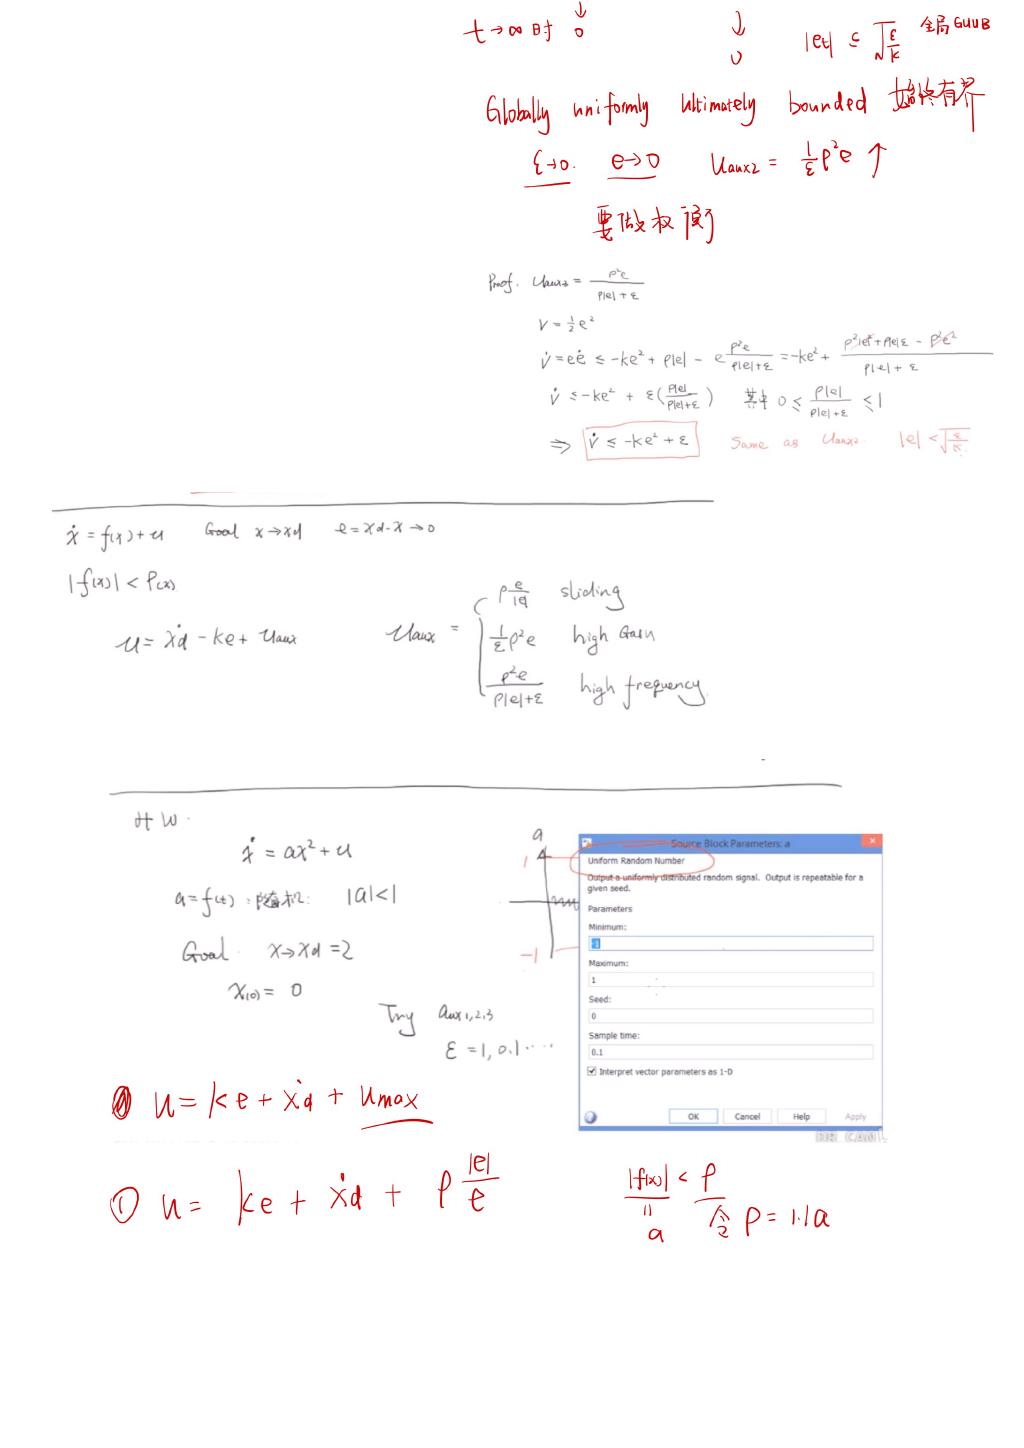 t→∞时 ↓ 0 ↓ 0 |et| ≤ √(ε/k) 全局GUUB
Globally uniformly ultimately bounded 始终有界
ε→0. e→0 Uaux2 = 1/ε ρ²e ↑
要做权衡
Proof. Uaux3 = ρ²e / (ρ|e| + ε)
V = ½e²
V̇ = eė ≤ -ke² + ρ|e| - e ρ²e/(ρ|e|+ε) = -ke² + (ρ²|e|² + ρ|e|ε - ρ²e²)/(ρ|e| + ε)
V̇ ≤ -ke² + ε(ρ|e|/(ρ|e|+ε)) 其中 0 ≤ ρ|e|/(ρ|e|+ε) ≤ 1
⇒ V̇ ≤ -ke² + ε Same as Uaux2. |e| < √(ε/k)
ẋ = f(x) + u Goal x→xd e = xd - x → 0
|f(x)| < ρ(x)
u = ẋd - ke + Uaux Uaux = { ρ e/|e| sliding
1/ε ρ²e high Gain
ρ²e/(ρ|e|+ε) high frequency.
HW.
ẋ = ax² + u
a = f(t) : 随机: |a|<1
Goal. x→xd = 2
x(0) = 0
Try aux1,2,3
ε = 1, 0.1 ····
a
1
-1
Source Block Parameters: a
Uniform Random Number
Output a uniformly distributed random signal. Output is repeatable for a
given seed.
Parameters
Minimum:
-1
Maximum:
1
Seed:
0
Sample time:
0.1
Interpret vector parameters as 1-D
OK Cancel Help Apply
u = ke + ẋd + umax
① u = ke + ẋd + ρ |e|/e
|f(x)| < ρ
"
a 令 ρ = 1.1a